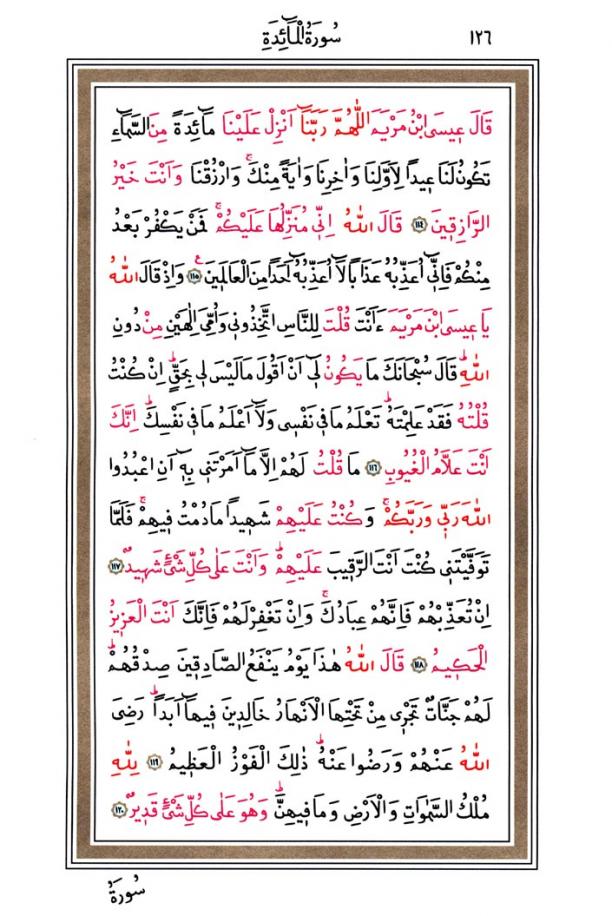 ١٢٦ سُورَةُ الْمَٓائِدَةِ
قَالَ عِيسَى ابْنُ مَرْيَمَ اللّٰهُمَّ رَبَّنَٓا اَنْزِلْ عَلَيْنَا مَٓائِدَةً مِنَ السَّمَٓاءِ
تَكُونُ لَنَا عِيداً لِاَوَّلِنَا وَاٰخِرِنَا وَاٰيَةً مِنْكَۚ وَارْزُقْنَا وَاَنْتَ خَيْرُ
الرَّازِقِينَ ﴿١١٤﴾ قَالَ اللّٰهُ اِنِّي مُنَزِّلُهَا عَلَيْكُمْۚ فَمَنْ يَكْفُرْ بَعْدُ
مِنْكُمْ فَاِنِّٓي اُعَذِّبُهُ عَذَاباً لَٓا اُعَذِّبُهُٓ اَحَداً مِنَ الْعَالَمِينَ ﴿١١٥﴾ وَاِذْ قَالَ اللّٰهُ
يَا عِيسَى ابْنَ مَرْيَمَ ءَاَنْتَ قُلْتَ لِلنَّاسِ اتَّخِذُونِي وَاُمِّيَ اِلٰهَيْنِ مِنْ دُونِ
اللّٰهِۜ قَالَ سُبْحَانَكَ مَا يَكُونُ لِٓي اَنْ اَقُولَ مَا لَيْسَ لِي بِحَقٍّۜ اِنْ كُنْتُ
قُلْتُهُ فَقَدْ عَلِمْتَهُۜ تَعْلَمُ مَا فِي نَفْسِي وَلَٓا اَعْلَمُ مَا فِي نَفْسِكَۜ اِنَّكَ
اَنْتَ عَلَّامُ الْغُيُوبِ ﴿١١٦﴾ مَا قُلْتُ لَهُمْ اِلَّا مَٓا اَمَرْتَنِي بِهِٓ اَنِ اعْبُدُوا
اللّٰهَ رَبِّي وَرَبَّكُمْۚ وَكُنْتُ عَلَيْهِمْ شَهِيداً مَا دُمْتُ فِيهِمْۚ فَلَمَّا
تَوَفَّيْتَنِي كُنْتَ اَنْتَ الرَّقِيبَ عَلَيْهِمْۜ وَاَنْتَ عَلٰى كُلِّ شَيْءٍ شَهِيدٌ ﴿١١٧﴾
اِنْ تُعَذِّبْهُمْ فَاِنَّهُمْ عِبَادُكَۚ وَاِنْ تَغْفِرْ لَهُمْ فَاِنَّكَ اَنْتَ الْعَزِيزُ
الْحَكِيمُ ﴿١١٨﴾ قَالَ اللّٰهُ هٰذَا يَوْمُ يَنْفَعُ الصَّادِقِينَ صِدْقُهُمْۜ
لَهُمْ جَنَّاتٌ تَجْرِي مِنْ تَحْتِهَا الْاَنْهَارُ خَالِدِينَ فِيهَٓا اَبَداًۜ رَضِيَ
اللّٰهُ عَنْهُمْ وَرَضُوا عَنْهُۜ ذٰلِكَ الْفَوْزُ الْعَظِيمُ ﴿١١٩﴾ لِلّٰهِ
مُلْكُ السَّمٰوَاتِ وَالْاَرْضِ وَمَا فِيهِنَّۜ وَهُوَ عَلٰى كُلِّ شَيْءٍ قَدِيرٌ ﴿١٢٠﴾
سُورَةُ